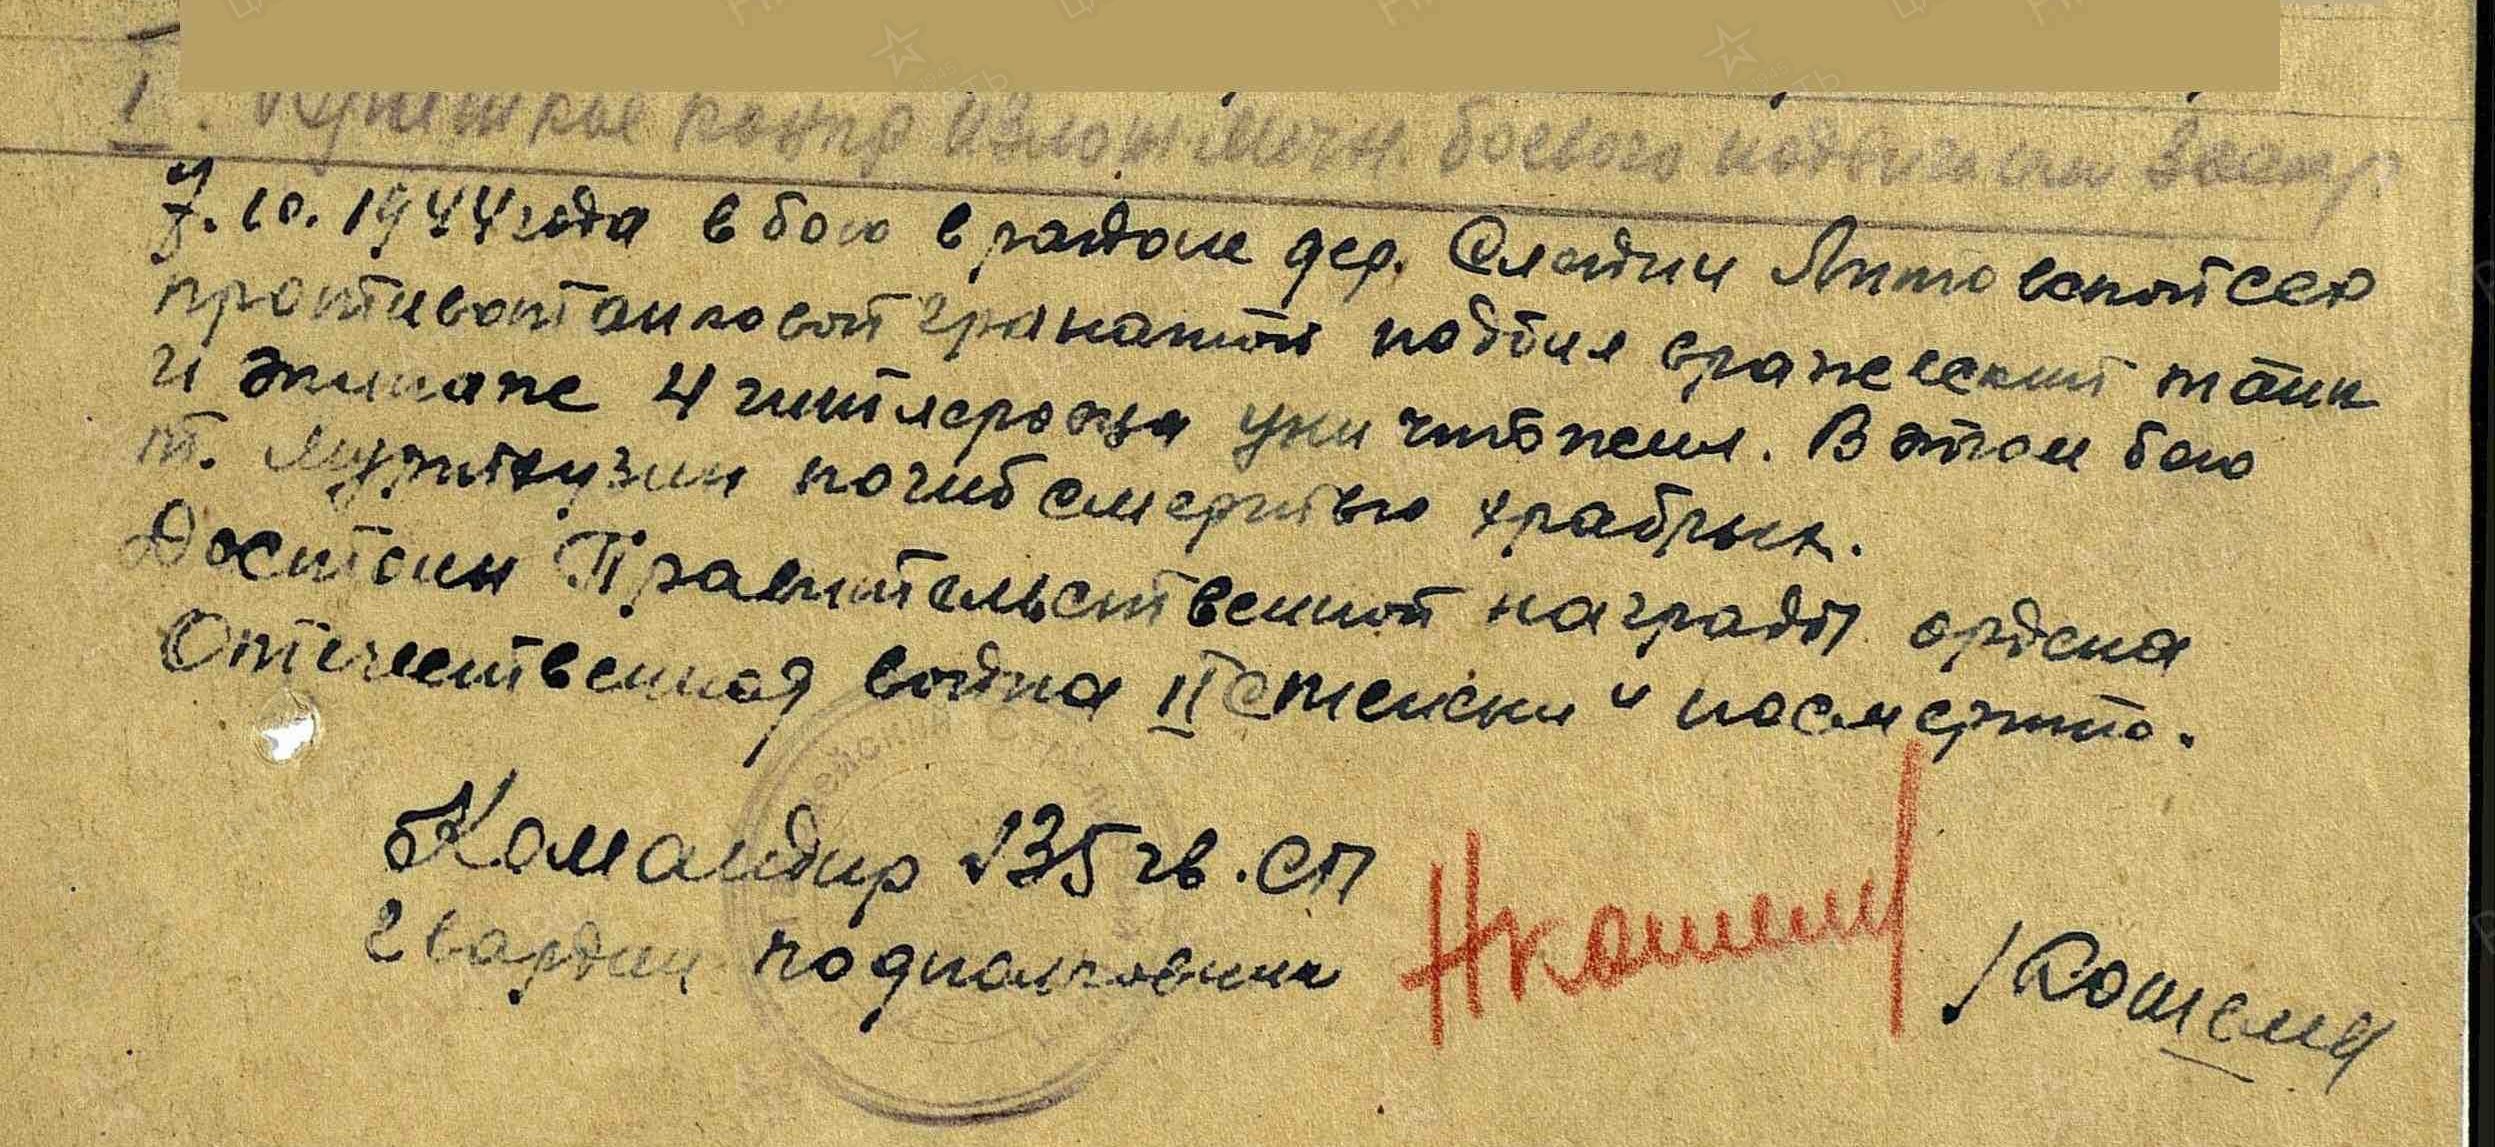 I. Краткое конкр изложение личн. боевого подвига или заслуг
7.10.1944 года в бою в районе дер. Литовской ССР
противотанковой гранатой подбил вражеский танк
и экипаж 4 гитлеровца уничтожил. В этом бою
т. погиб смертью храбрых.
Достоин Правительственной награды ордена
Отечественная война II степени" посмертно.
Командир 135 гв. СП
Гвардии подполковник Нкошени /Кошени